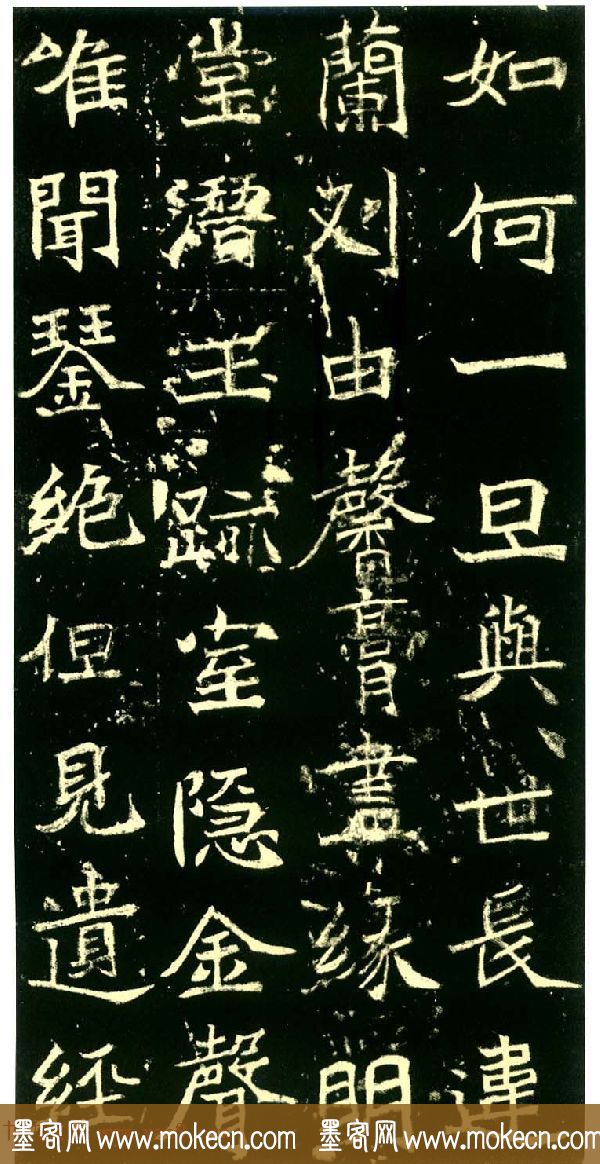 如何一旦與世長違
蘭刈由馨膏盡緣明
堂潛玉跡室隱金聲
唯聞琴絕但見遺經
墨客网 www.mokecn.com 墨客网 www.mokecn.com